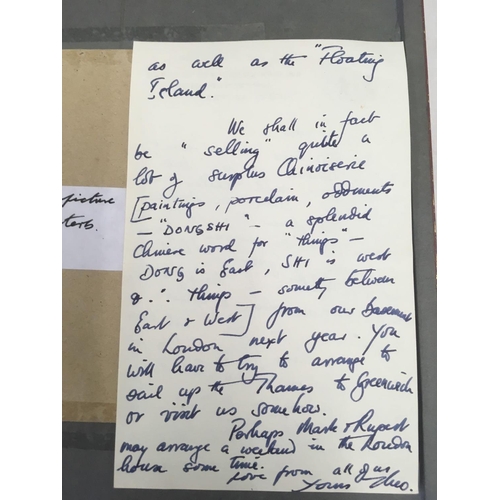 as well as the "Floating
Island."
We shall in fact
be "selling" quite a
lot of surplus Chinoiserie
[paintings, porcelain, oddments
- "DONGSHI" - a splendid
Chinese word for "things" -
DONG is East, SHI is west
& ∴ things - somety between
East & West] from our basement
in London next year. You
will have to try to arrange to
sail up the Thames to Greenwich
or visit us somehow.
Perhaps Mark & Rupert
may arrange a weekend in the London
house some time.
Love from all of us
Yours
picture